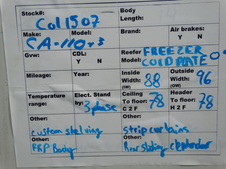 Stock#: Col1507
Body Length:
Make: Model: CA-110-3
Brand:
Air brakes? Y N
Gvw:
CDL: Y N
Reefer Model: FREEZER COLDPLATE
Mileage:
Year:
Inside Width: 88
Outside Width: 96
Temperature range:
Elect. Stand by: 3 phase
Ceiling To floor: 78
Header To floor: 78
Other: custom shelving
Other: strip curtains
Other: FRP Body
Other: